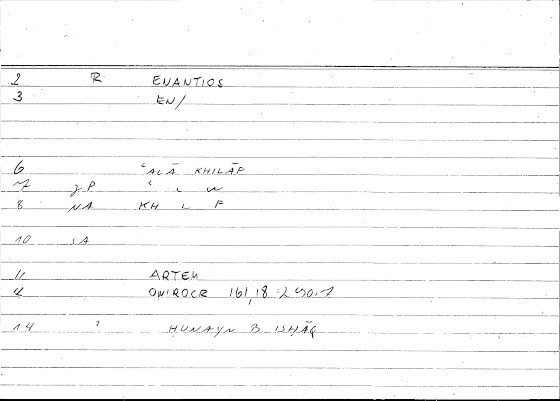 2 R ENANTIOS
3 EN/
6 ʿALĀ KHILĀF
7 JP ʿ L W
8 NA KH L F
10 JA
11 ARTEM
12 ONIROCR 161,18 = 290.7
14 1 HUNAYN B ISḤĀQ